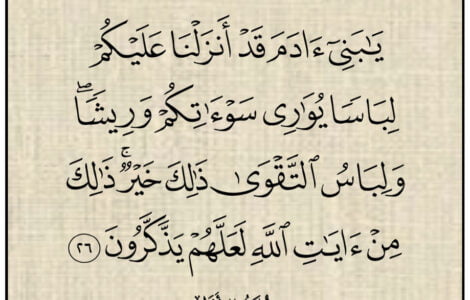 يَٰبَنِىٓ ءَادَمَ قَدْ أَنزَلْنَا عَلَيْكُمْ
لِبَاسًا يُوَٰرِى سَوْءَٰتِكُمْ وَرِيشًا ۖ
وَلِبَاسُ ٱلتَّقْوَىٰ ذَٰلِكَ خَيْرٌ ۚ ذَٰلِكَ
مِنْ ءَايَٰتِ ٱللَّهِ لَعَلَّهُمْ يَذَّكَّرُونَ ٢٦